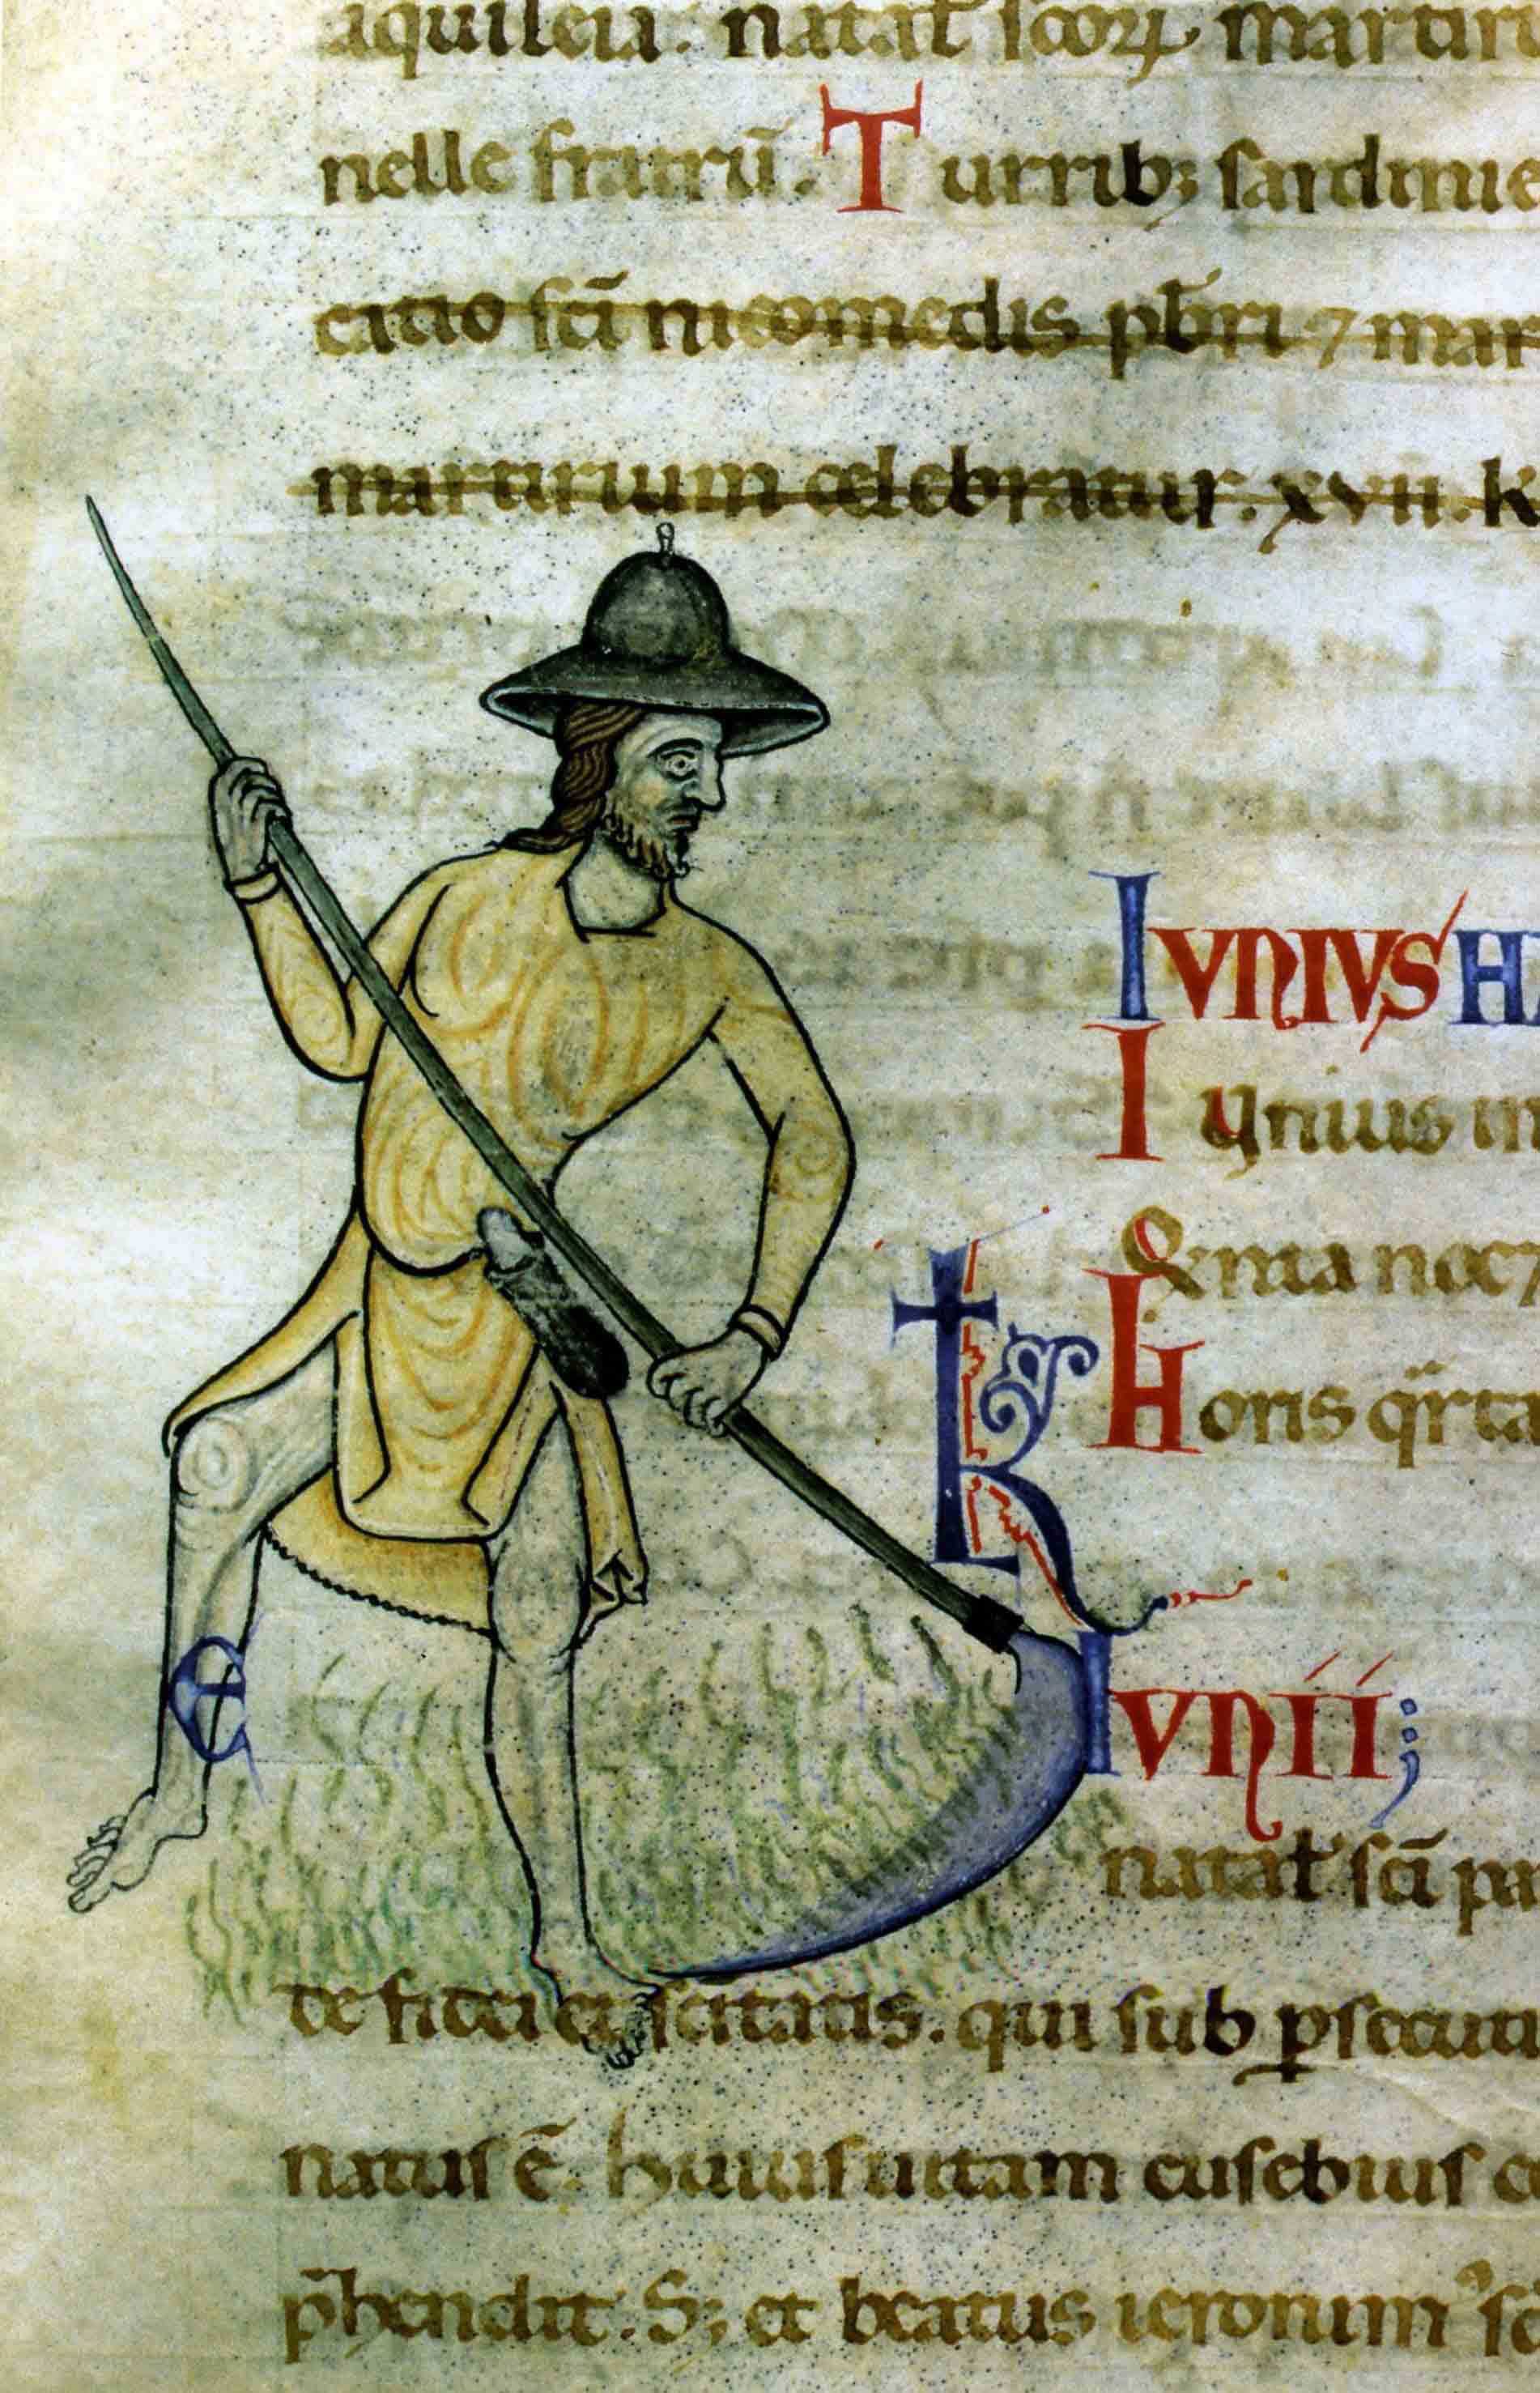 aquileia. natal̄ scoꝝ martiru
nelle fratrū. Turrib; sardinie
catio sc̄i nicomedis pb̄ri ⁊ mar
martirium celebratur. xvii. k
IVNIVS HA
Iunius in
Horis q̄rta
K
IVNII;
natal̄ sc̄i pa
e
te fidei et sc̄itatis. qui sub ꝑsecuti
natus ē. Huius uitam eusebius c
p̄hendit. S; et beatus ieronim᾽ sc